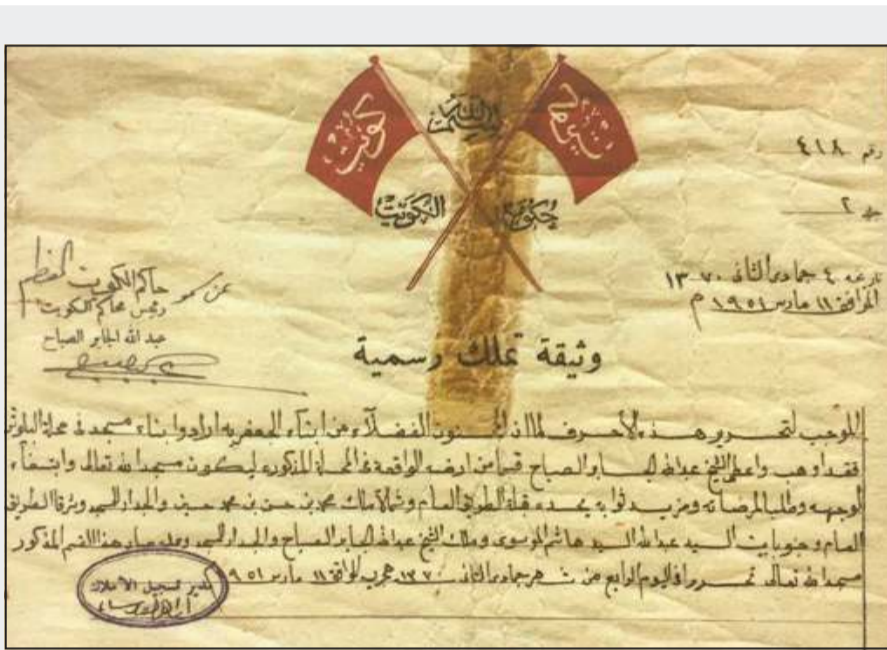 بسم الله
كويت
كويت
حكومة الكويت
رقم ٤١٨
جلد ٢
تاريخه ٤ جمادى الثاني ١٣٧٠
الموافق ١١ مارس ١٩٥١ م
عن سمو حاكم الكويت المعظم
رئيس محاكم الكويت
عبد الله الجابر الصباح
وثيقة تملك رسمية
الموجب لتحرير هذه الأحرف لما ان المحسنون الفضلاء من ابناء الجعفريه ارادوا بناء مسجد في محلة
فقد اوهب واعطى الشيخ عبدالله الجابر الصباح قسما من ارضه الواقعة في المحلة المذكوره ليكون مسجدا لله تعالى وابتغاء
لوجهه وطلبا لمرضاته ومزيد ثوابه يحده قبلة الطريق العام وشمالا ملك محمد بن حسن بن محمد حسين والجدار للمسجد وشرقا الطريق
العام وجنوبا بيت السيد عبدالله السيد هاشم الموسوي وملك الشيخ عبدالله الجابر الصباح والجدار للمسجد وقد صار هذا القسم المذكور
مسجدا لله تعالى تحررا في اليوم الرابع من شهر جمادى الثاني ١٣٧٠ هجري الموافق ١١ مارس ١٩٥١
مدير تسجيل الأملاك